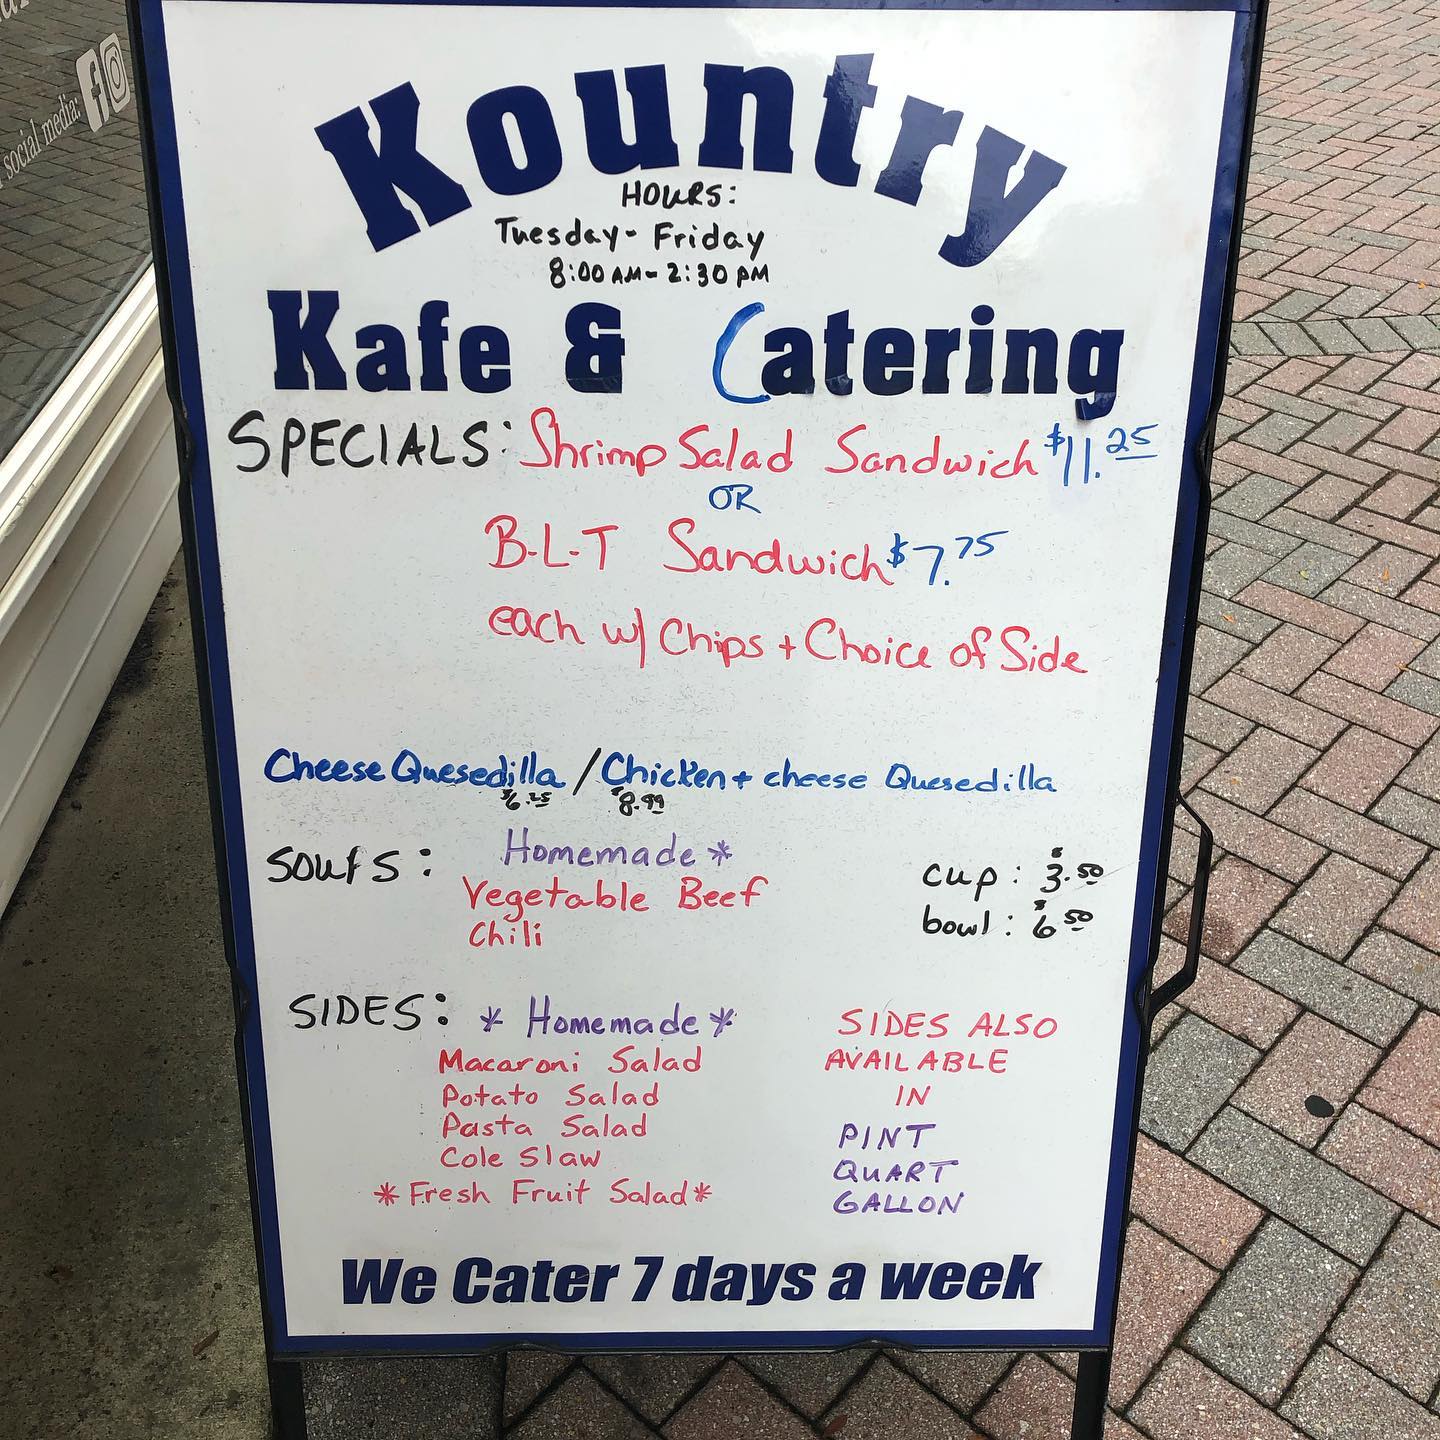 social media:
Kountry
HOURS:
Tuesday - Friday
8:00 AM - 2:30 PM
Kafe & Catering
SPECIALS: Shrimp Salad Sandwich $11.25
OR
B-L-T Sandwich $7.75
each w/ Chips + Choice of Side
Cheese Quesedilla / Chicken + cheese Quesedilla
$6.25 $8.99
SOUPS: Homemade *
Vegetable Beef
Chili
cup: $3.50
bowl: $6.50
SIDES: * Homemade *
Macaroni Salad
Potato Salad
Pasta Salad
Cole Slaw
* Fresh Fruit Salad *
SIDES ALSO
AVAILABLE
IN
PINT
QUART
GALLON
We Cater 7 days a week